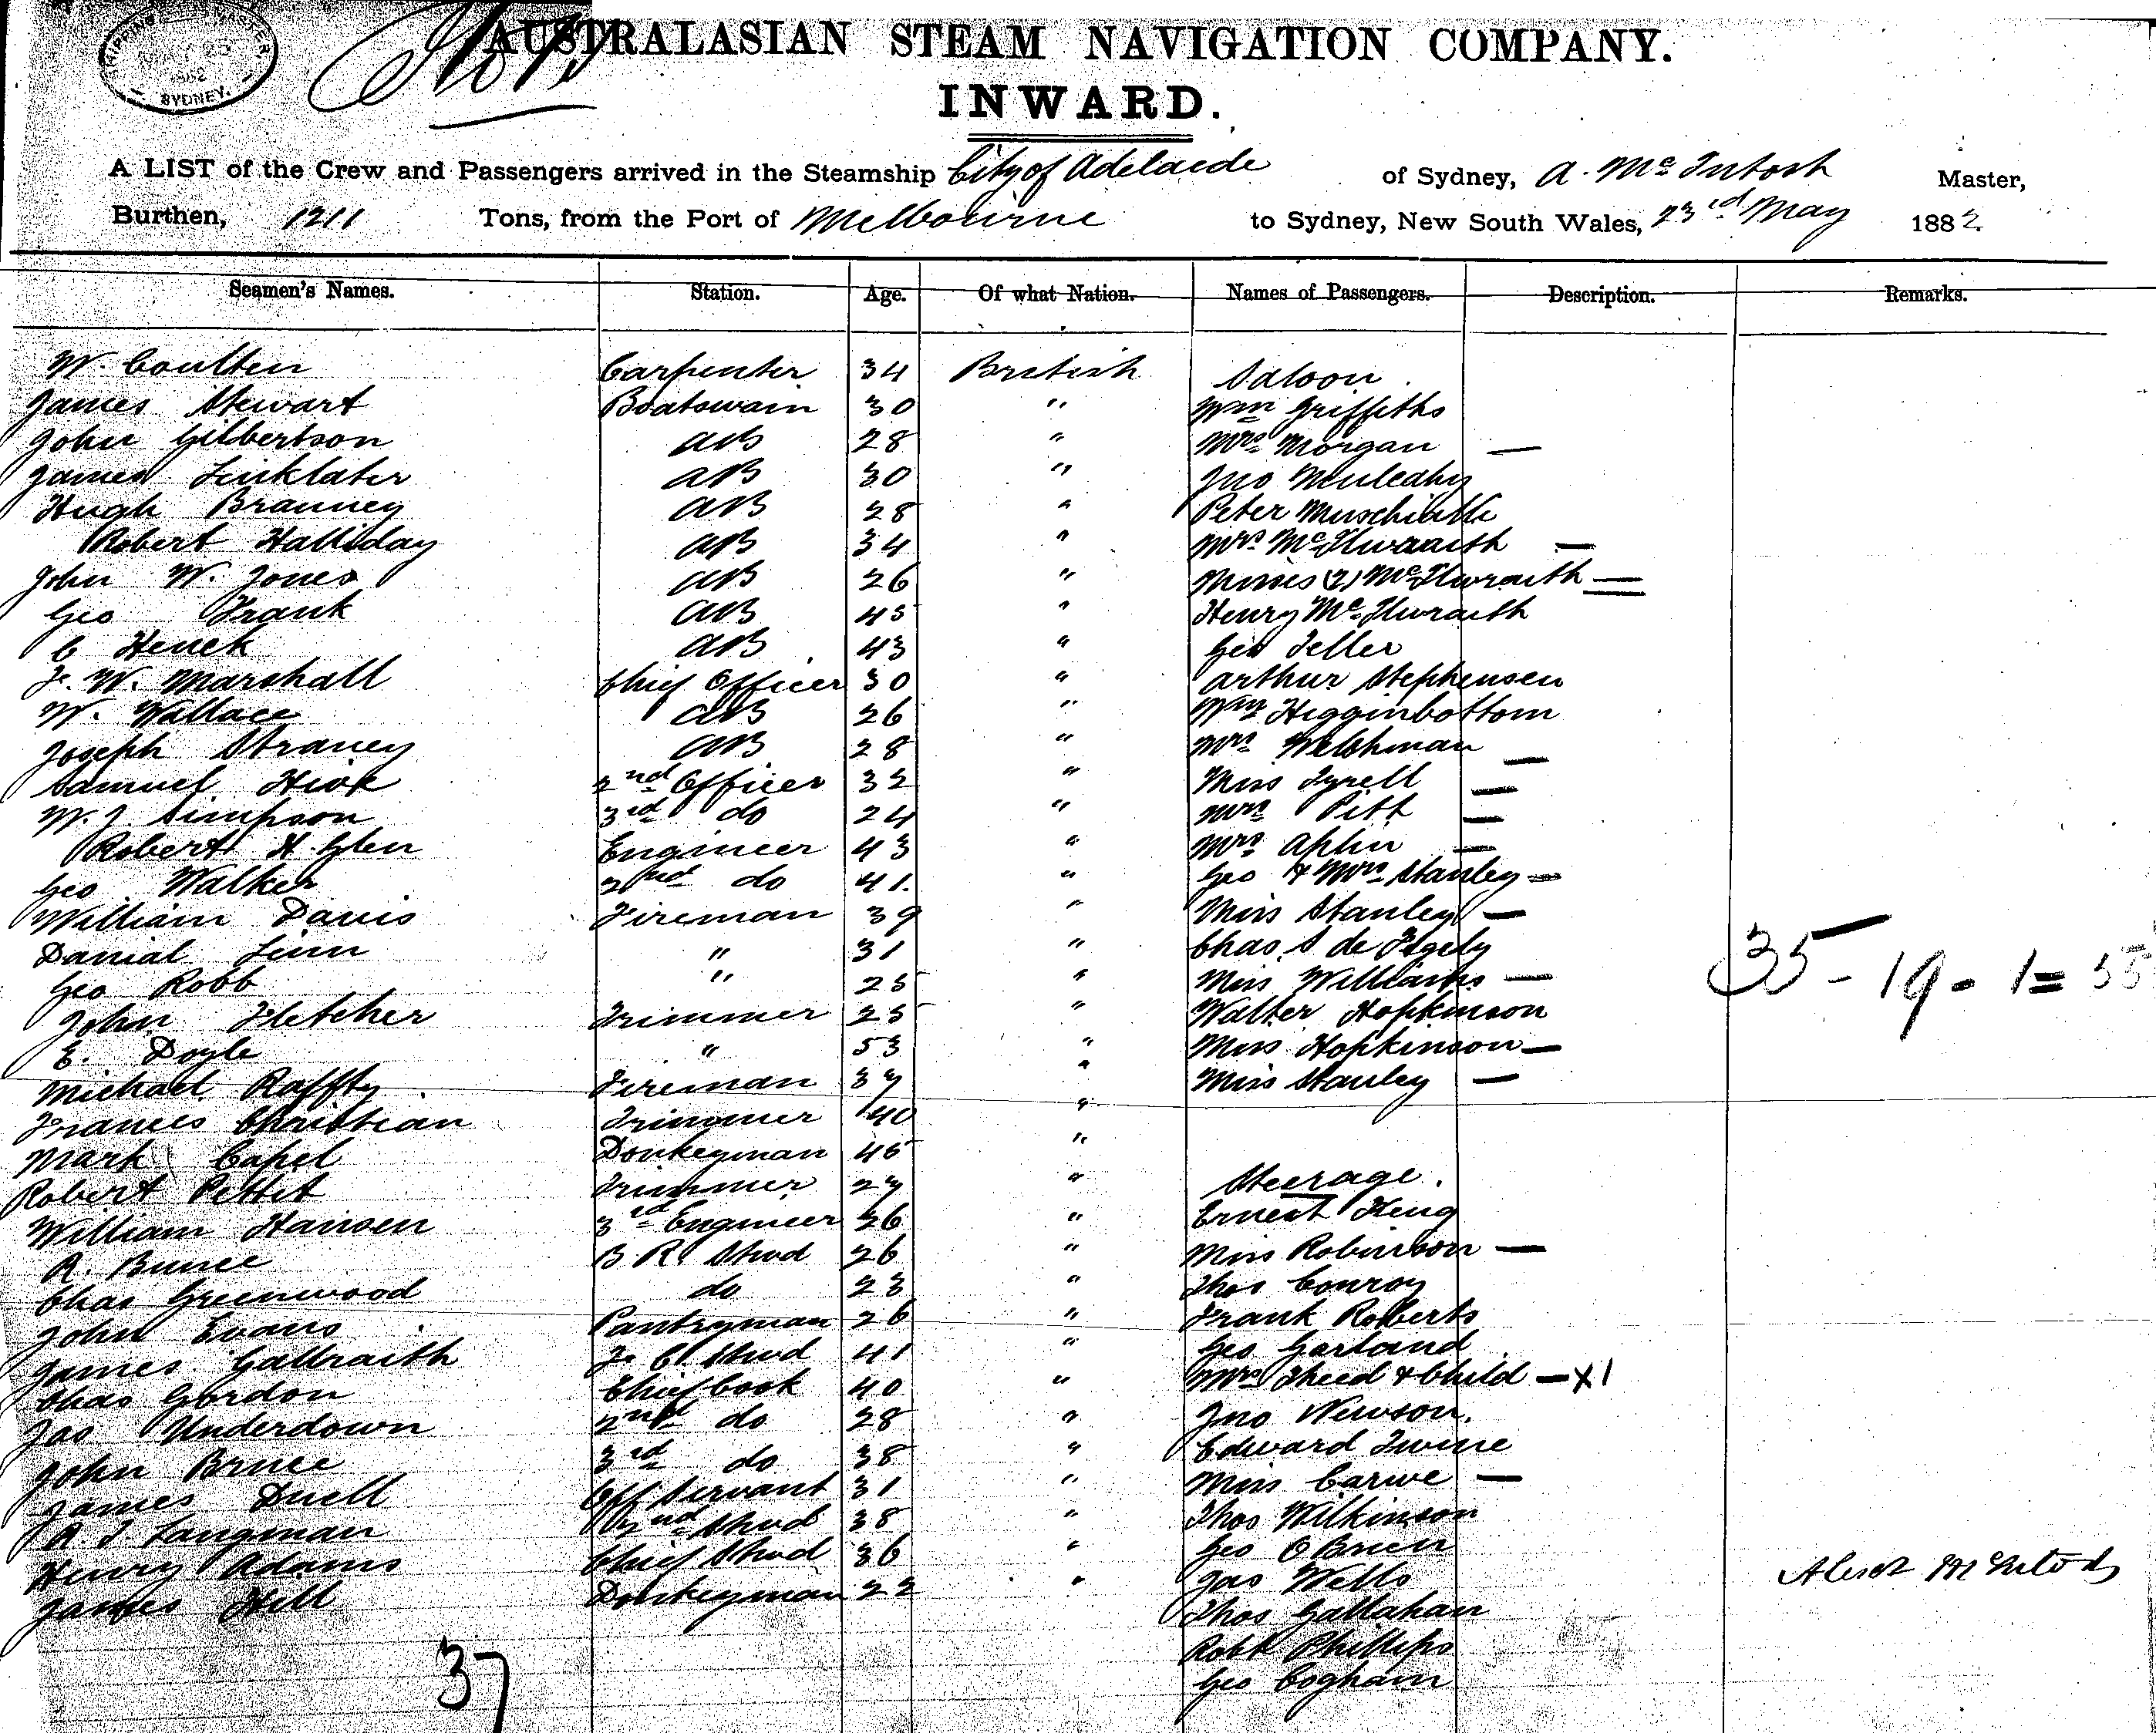 SHIPPING MASTER
MAY 23
1882
SYDNEY.
AUSTRALASIAN STEAM NAVIGATION COMPANY.
INWARD.
A LIST of the Crew and Passengers arrived in the Steamship City of Adelaide of Sydney, A. McIntosh Master,
Burthen, 1211 Tons, from the Port of Melbourne to Sydney, New South Wales, 23rd May 1882
Seamen's Names. Station. Age. Of what Nation. Names of Passengers. Description. Remarks.
W. Coulten Carpenter 34 British Saloon
James Stewart Boatswain 30 " Wm Griffiths
John Gilbertson AB 28 " Mrs Morgan —
James Linklater AB 30 " Jno Mulcahy
Hugh Branney AB 28 " Peter
Robert Halliday AB 34 " Mrs McIlwraith —
John W. Jones AB 26 " Misses (2) McIlwraith —
Geo Frank AB 45 " Henry McIlwraith
C Henek AB 43 " Geo Feller
F. W. Marshall Chief Officer 30 " Arthur Stephensen
W. Wallace AB 26 " Wm Higginbottom
Joseph Straney AB 28 " Mrs Welshman —
Samuel 2nd Officer 32 " Miss Tyrell —
W. J. Simpson 3rd do 24 " Mrs Pitt —
Robert H. Glen Engineer 43 " Mrs Aplin —
Geo Walker 2nd do 41 " Geo & Mrs Stanley —
William Davis Fireman 39 " Miss Stanley —
Danial Linn " 31 " Chas S de
Geo Robb " 25 " Miss Williams —
John Fletcher Trimmer 25 " Walter Hopkinson
E. Doyle " 53 " Miss Hopkinson —
Michael Raffty Fireman 37 " Miss Stanley —
Frances Christian Trimmer 40 "
Mark Capel Donkeyman 45 "
Robert Pettit Trimmer 27 " Steerage.
William Hansen 3rd Engineer 26 " Ernest King
R. Bunce B. R. Stwd 26 " Miss Robinson —
Chas Greenwood do 23 " Thos Conroy
John Evans Pantryman 26 " Frank Roberts
James Galbraith F. C. Stwd 41 " Geo Garland
Chas Gordon Chief Cook 40 " Mrs Theed & Child — x1
Jas Underdown 2nd do 28 " Jno Newson.
John Bruce 3rd do 38 " Edward Twine
James Duell Off Servant 31 " Miss Carwe —
R. J. Langman 2nd Stwd 38 " Thos Wilkinson
Henry Adams Chief Stwd 36 " Geo O Brien
James Hill Donkeyman 22 " Jas Wells
Thos Gallahan
Robt Phillips
Geo Cogham
35 - 19 - 1 = 55
Alexr McIntosh
37